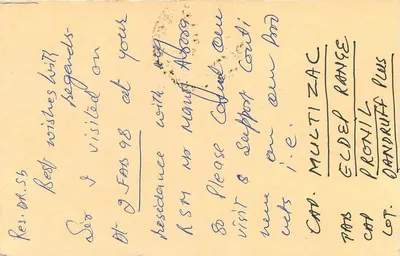 Res. DR. Sb
Best wishes with
regards.
Sir I visited on
Dt 9 FAB 98 at your
residance with my
RSM Mr Manoj Arora.
So Please Count our
visit & Support Conti
nue on our Prod
ucts i.e.
CAP. MULTIZAC
TAB ELDEP RANGE
CAP PRONIL
LOT. DANDRUFF PLUS